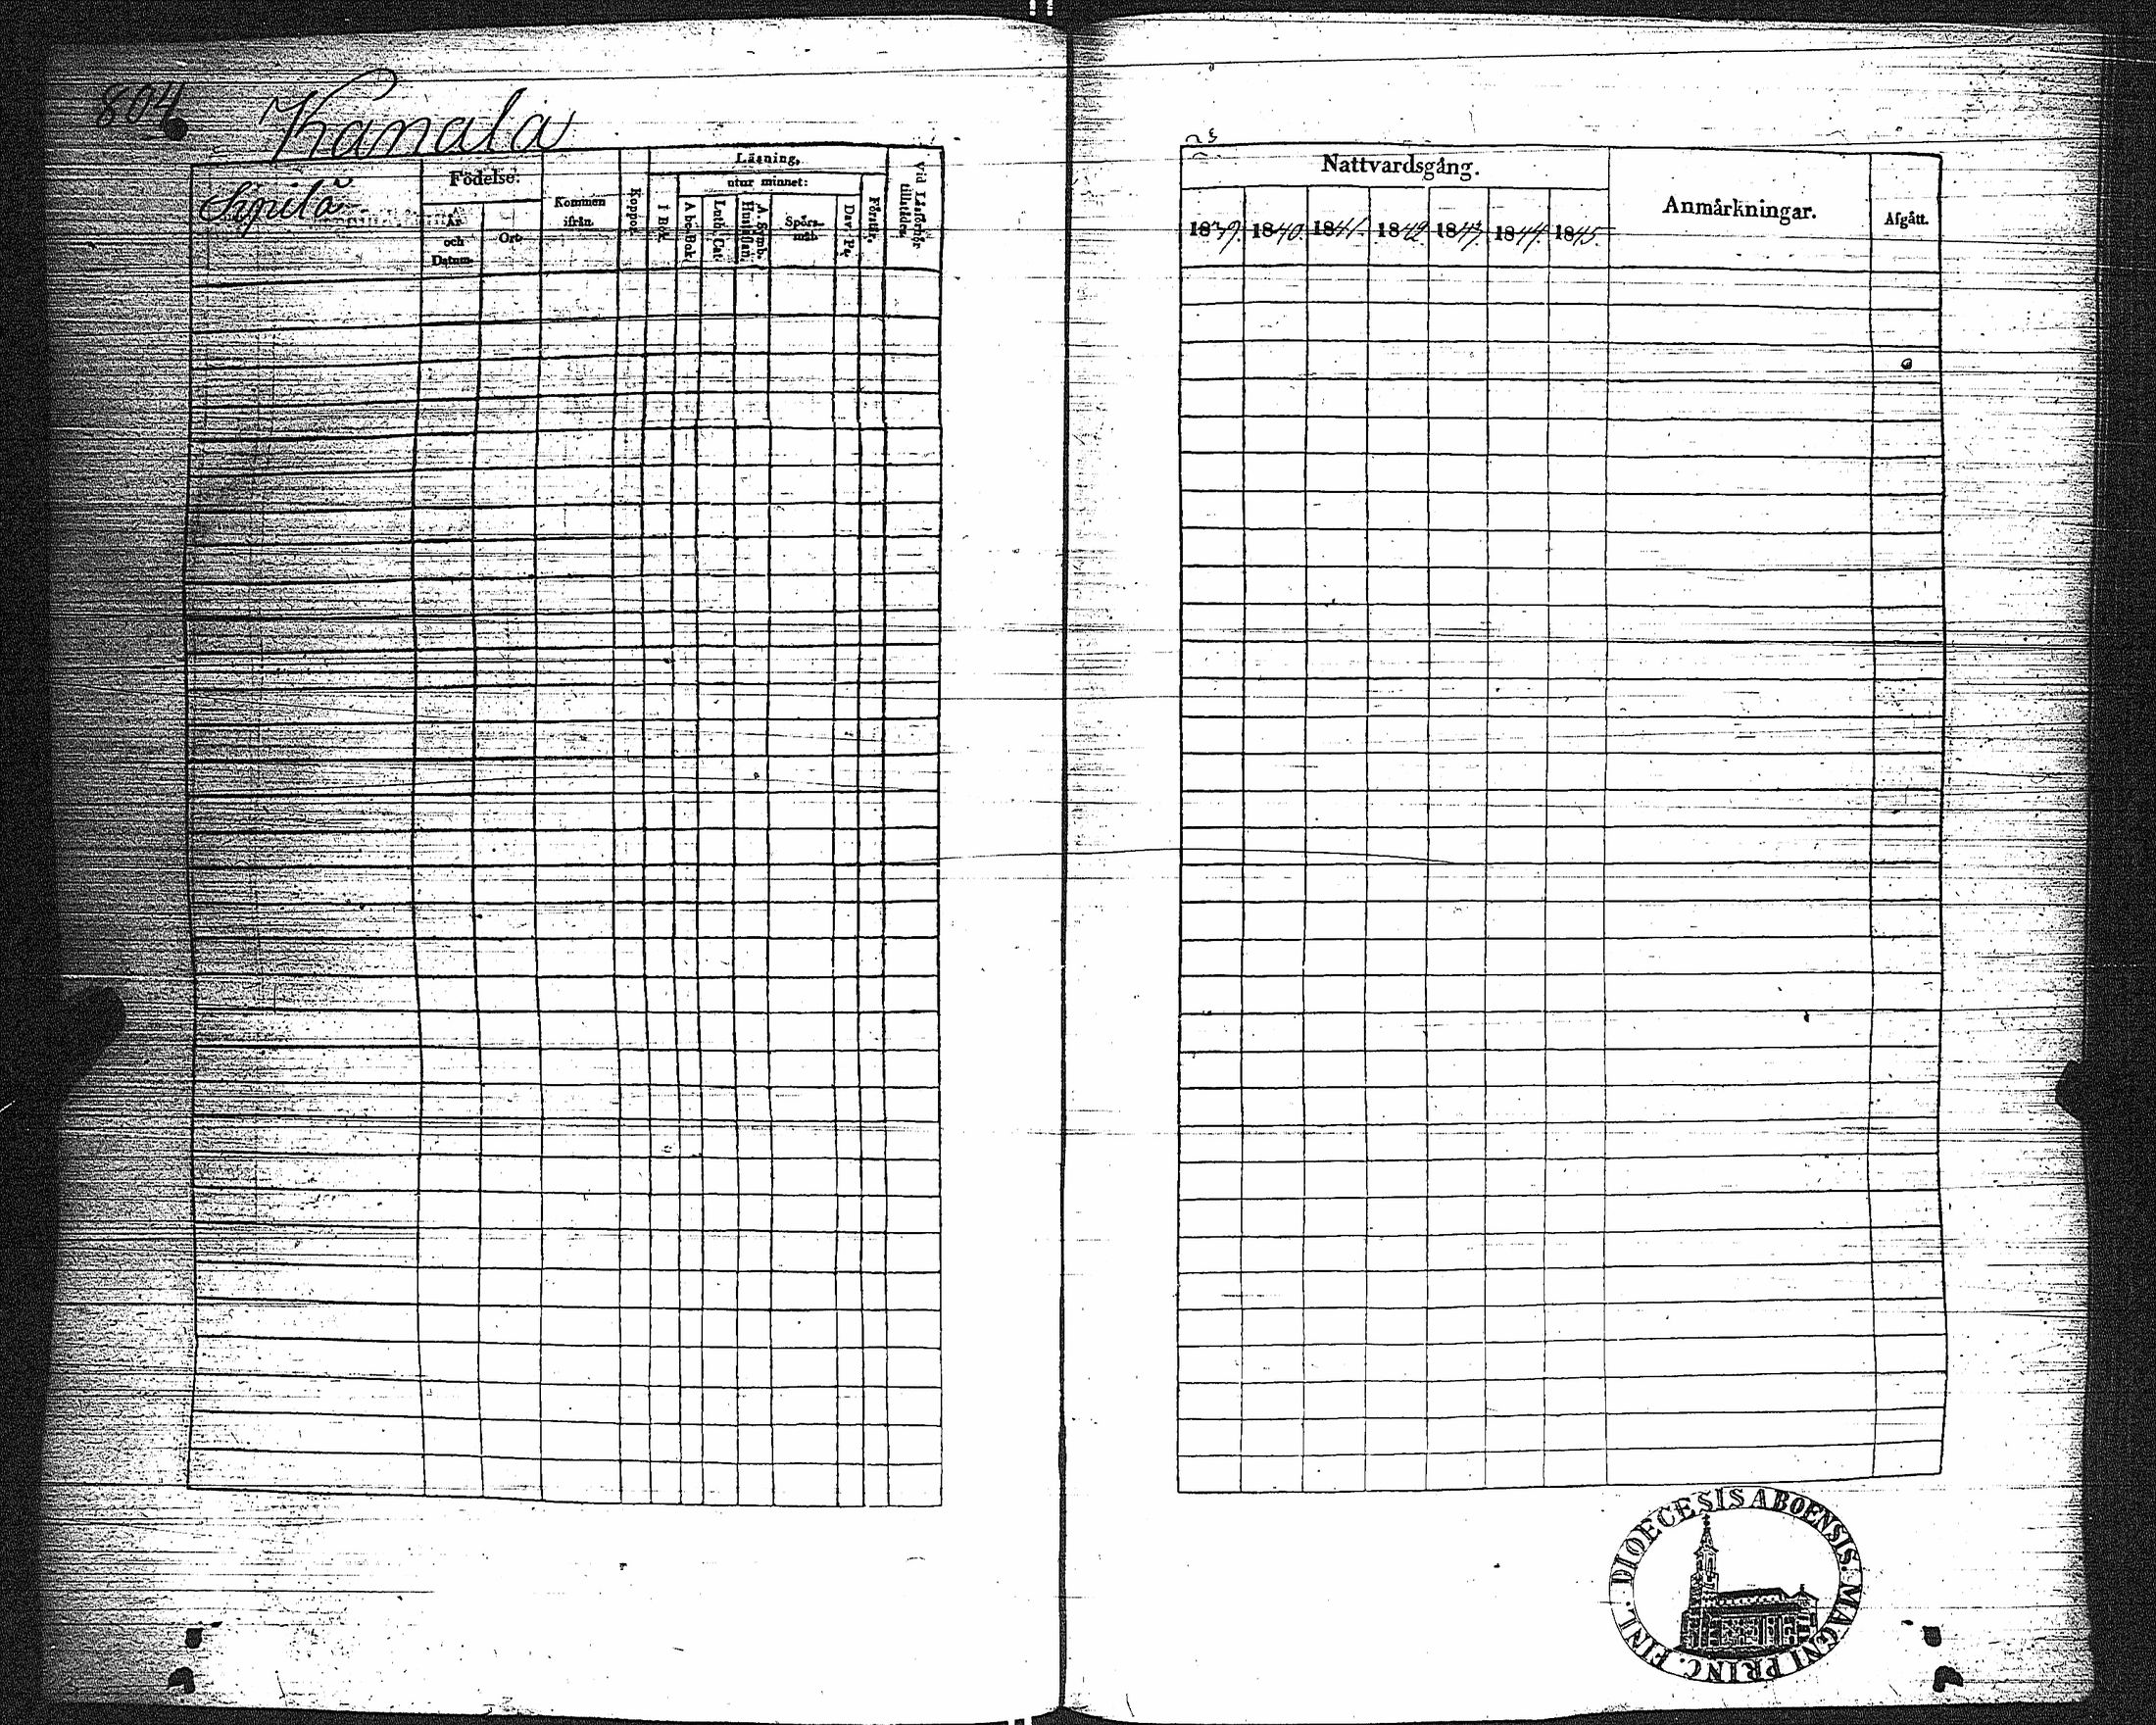 804
Kanala
Sipilä
Födelse:
År
och
Datum.
Ort.
Kommen
ifrån.
Koppor.
Läsning,
utur minnet:
i Bok.
A bc-Bok
Luth. Cat.
A. Symb.
Hustaflan.
Spörs-
mål.
Dav. Ps.
Förstår.
vid Läsförhör
tillstädes.
Nattvardsgång.
1839. 1840. 1841. 1842. 1843. 1844. 1845.
Anmärkningar.
Afgått.
DIOECESIS ABOENSIS. MAGNI PRINC. FINL.